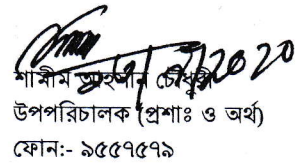 ২০/৭/2020
শামীম আহসান চৌধুরী
উপপরিচালক (প্রশাঃ ও অর্থ)
ফোন:- ৯৫৫৭৫৭৯